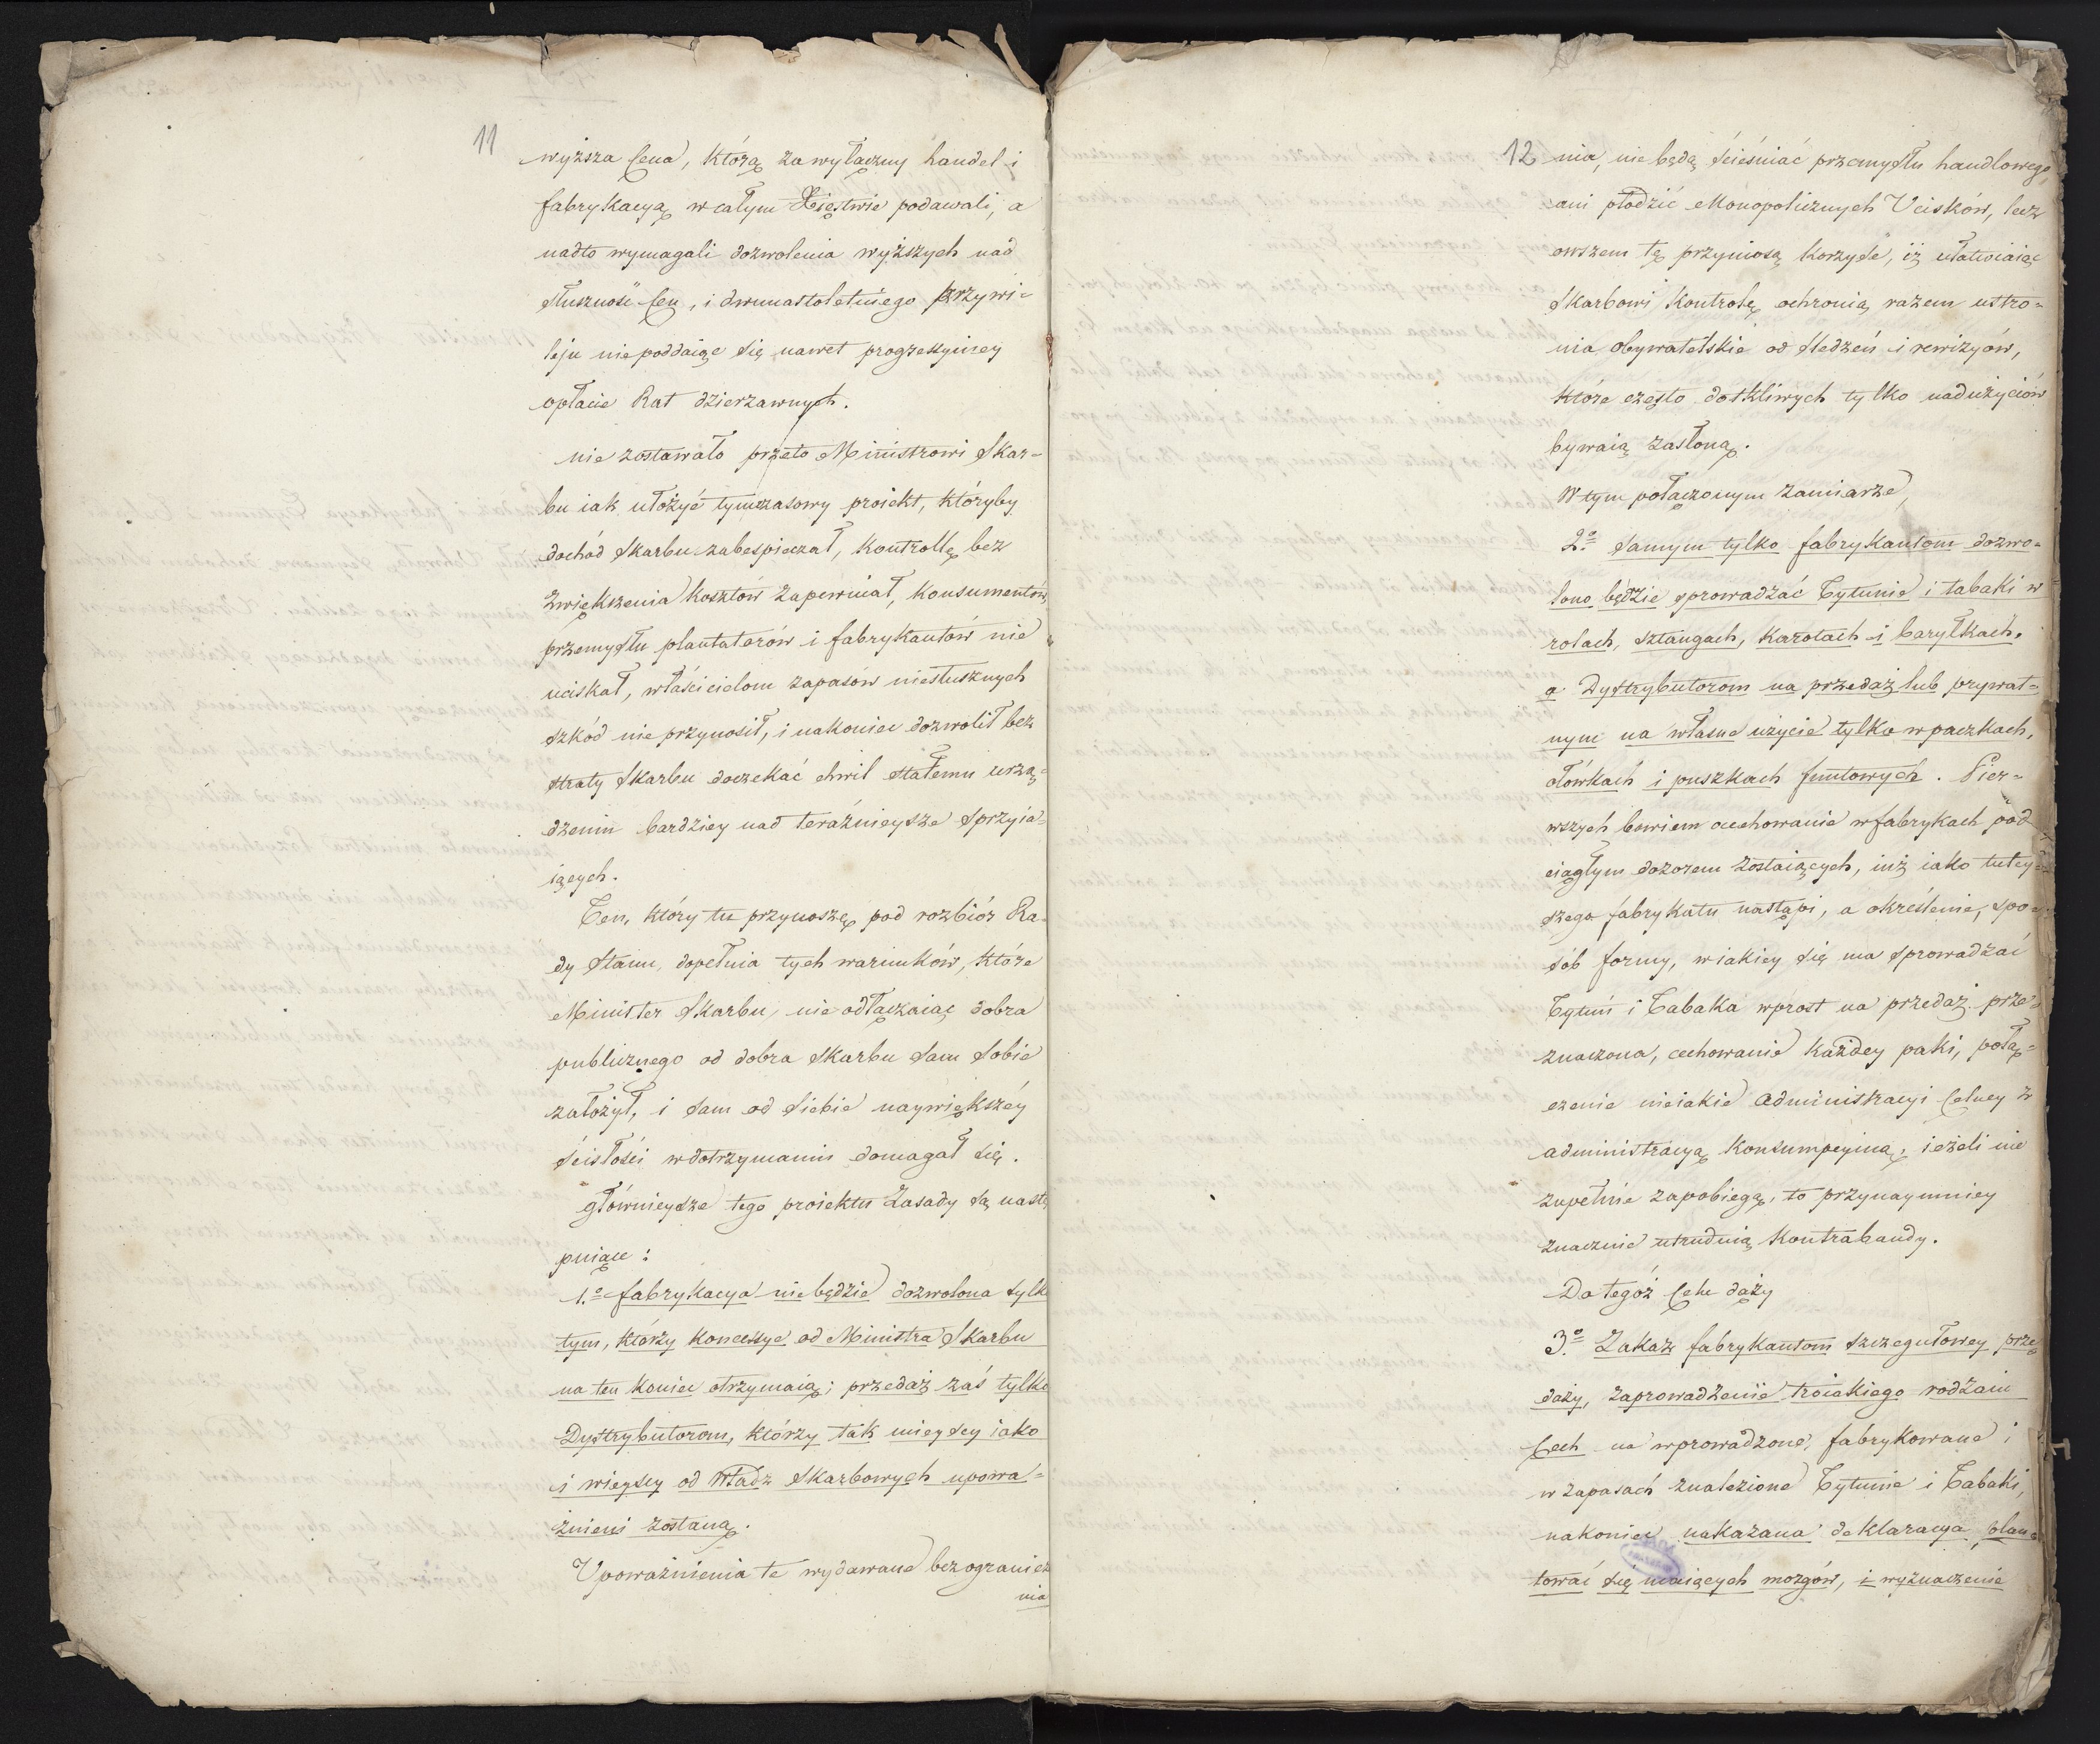 11
wyższa Cena, którą za wyłączny handel i
fabrykacyą w całym Xięstwie podawali, a
nadto wymagali dozwolenia wyższych nad
słuszność Cen, i dwunastoletniego przywi-
leju nie poddaiąc się nawet progressyiney
opłacie Rat dzierzawnych.
nie zostawało przeto Ministrowi Skar-
bu iak ułożyć tymczasowy proiekt, któryby
dochód Skarbu zabespieczał, kontrollę bez
zwiększenia kosztów zapewniał, konsumentów,
przemysłu plantatorów i fabrykantów nie
uciskał, właścicielom zapasów niesłusznych
szkód nie przynosił, i nakoniec dozwolił bez
straty Skarbu doczekać chwil stałemu urzą-
dzeniu bardziey nad teraźnieysze sprzyia-
iących.
Ten, który tu przynoszę pod rozbiór Ra-
dy Stanu, dopełnia tych warunków, które
Minister Skarbu, nie odłączaiąc dobra
publicznego od dobra Skarbu sam sobie
założył, i sam od siebie naywiększéy
ścisłości w dotrzymaniu domagał się.
głównieysze tego proiektu Zasady są nastę
puiące:
1.º fabrykacya nie będzie dozwolona tylko
tym, którzy koncessye od Ministra Skarbu
na ten koniec otrzymaią; przedaż zaś tylko
Dystrybutorom, którzy tak mieyscy iako
i wieyscy od Władz Skarbowych upowa-
żnieni zostaną.
Upoważnienia te wydawane bez ogranicze
nia
12
nia, nie będą ścieśniać przemysłu handlowego,
ani płodzić Monopolicznych Ucisków, lecz
owszem tę przyniosą korzyść, iż ułatwiaiąc
Skarbowi kontrolę ochronią razem ustro-
nia obywatelskie od śledzeń i rewizyów,
które często dotkliwych tylko nadużyciów
bywaią zasłoną.
W tym połączonym zamiarze,
2.º samym tylko fabrykantom dozwo-
lono będzie sprowadzać Tytunie i tabaki w
rolach, sztangach, karotach i baryłkach,
a Dystrybutorom na przedaż lub prywat-
nym na własne użycie tylko w paczkach,
ołówkach i puszkach funtowych. Pier-
wszych bowiem cechowanie w fabrykach pod
ciągłym dozorem zostaiących, iuż iako tutey-
szego fabrykatu nastąpi, a określenie, spo-
sób formy, w iakiey się ma sprowadzać
Tytuń i Tabaka wprost na przedaż prze-
znaczona, cechowanie każdey paki, połą-
czenie nieiakie administracyi Celney z
administracyą konsumpcyiną, ieżeli nie
zupełnie zapobiegą, to przynaymniey
znacznie utrudnią kontrabandy.
Do tegoż Celu dąży
3.º Zakaz fabrykantom szczegułowey prze
daży, zaprowadzenie troiakiego rodzaiu
Cech na wprowadzone, fabrykowane i
w zapasach znalezione Tytunie i Tabaki,
nakoniec nakazana deklaracya, plan-
tować się maiących morgów, i wyznaczenie